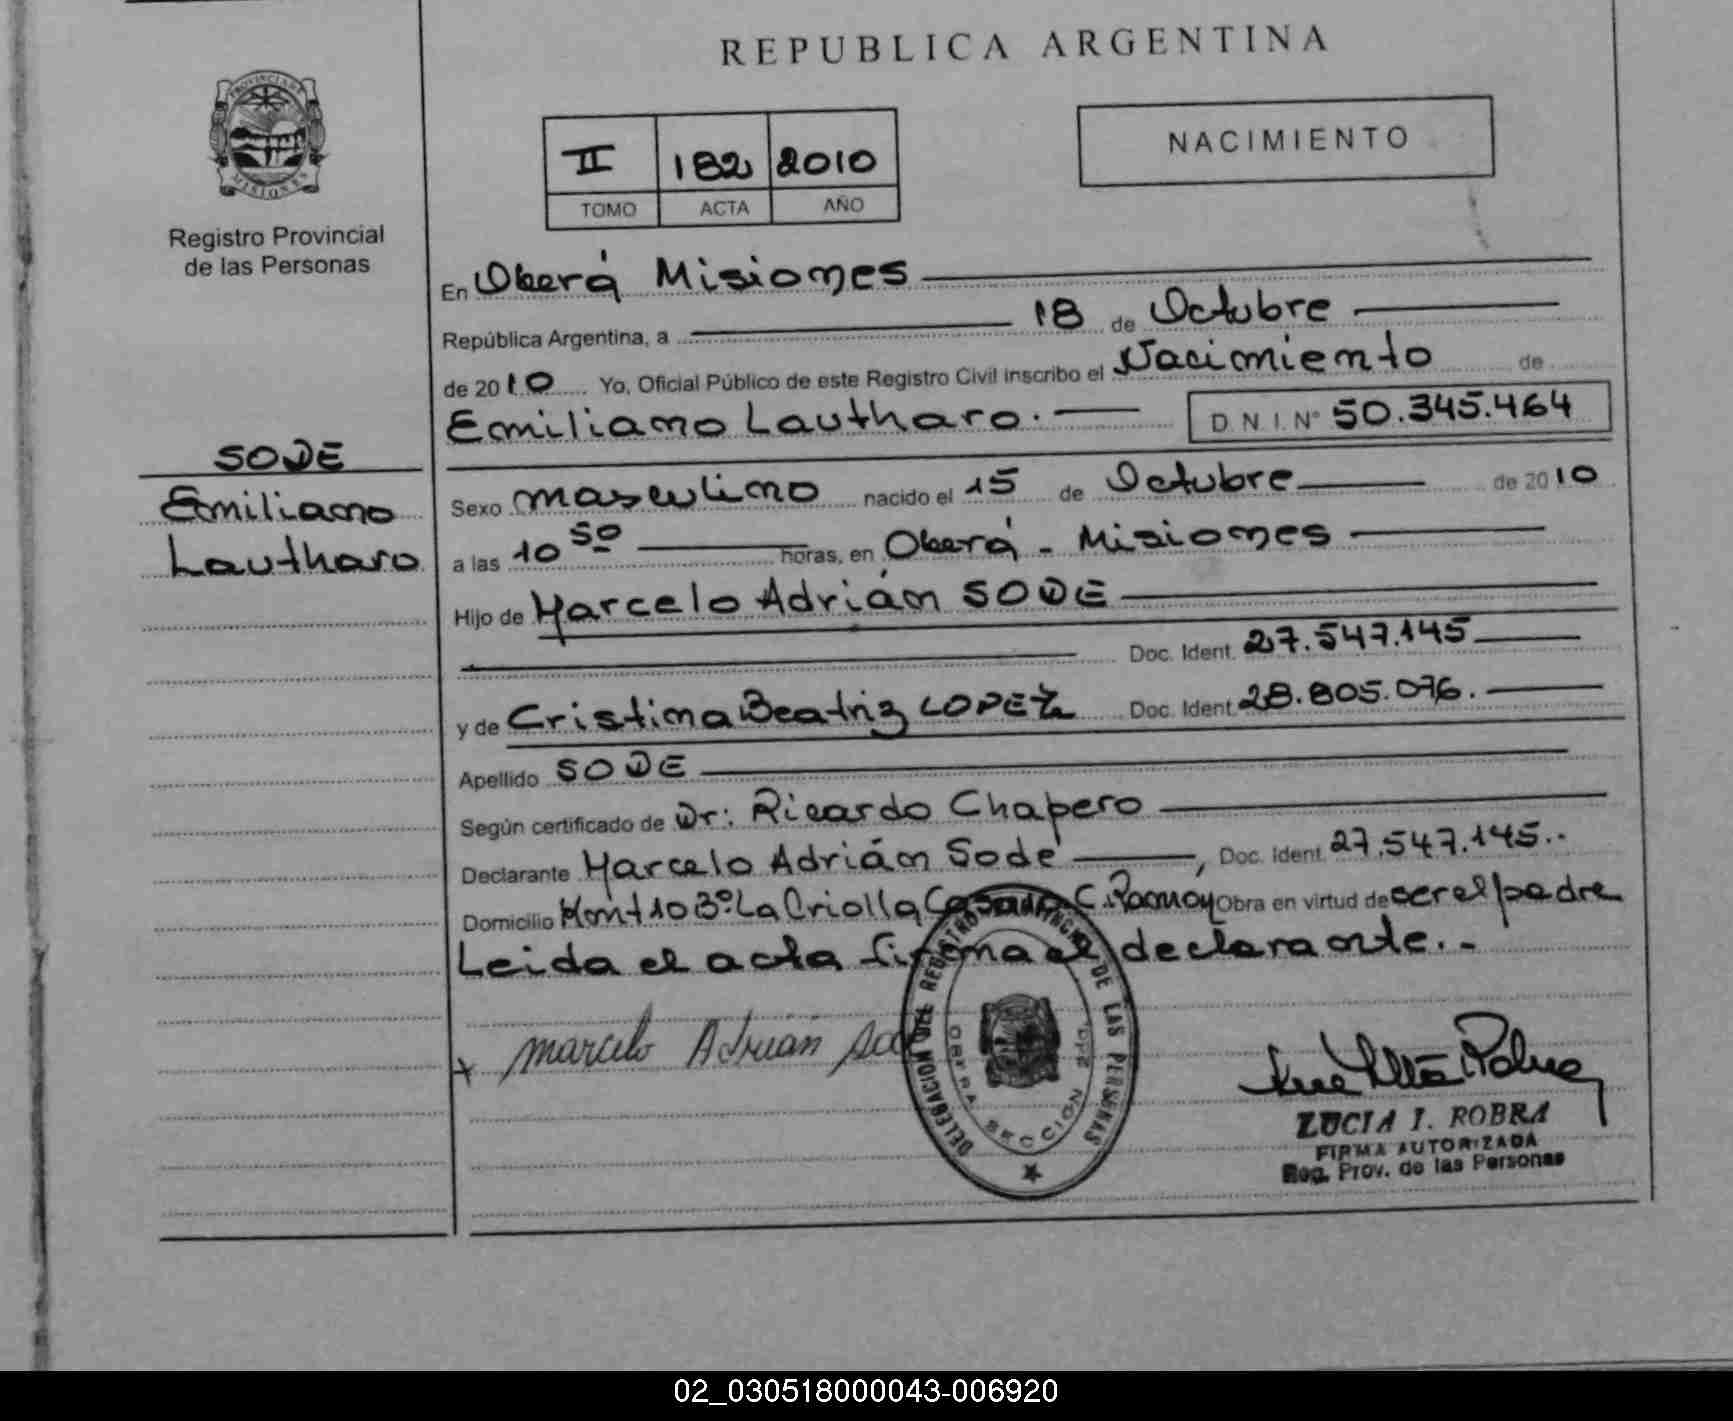 REPUBLICA ARGENTINA
PROVINCIA DE
MISIONES
Registro Provincial
de las Personas
II 182 2010
TOMO ACTA AÑO
NACIMIENTO
En Oberá Misiones
República Argentina, a 18 de Octubre
de 2010 Yo, Oficial Público de este Registro Civil inscribo el Nacimiento de
Emiliano Lautharo. D.N.I. N° 50.345.464
SODE
Emiliano
Lautharo
Sexo masculino nacido el 15 de Octubre de 2010
a las 10 50 horas, en Oberá - Misiones
Hijo de Marcelo Adrián SODE
Doc. Ident. 27.547.145
y de Cristina Beatriz LOPEZ Doc. Ident. 28.805.076.
Apellido SODE
Según certificado de Dr: Ricardo Chapero
Declarante Marcelo Adrián Sode, Doc. Ident. 27.547.145..
Domicilio 103° La Criolla C. Ramoy Obra en virtud de ser el padre
Leida el acta firma el declarante.-
x Marcelo Adrian
DELEGACION DEL REGISTRO PROVINCIAL DE LAS PERSONAS
OBERA SECCION 2da
LUCIA I. ROBRA
FIRMA AUTORIZADA
Reg. Prov. de las Personas
02_030518000043-006920